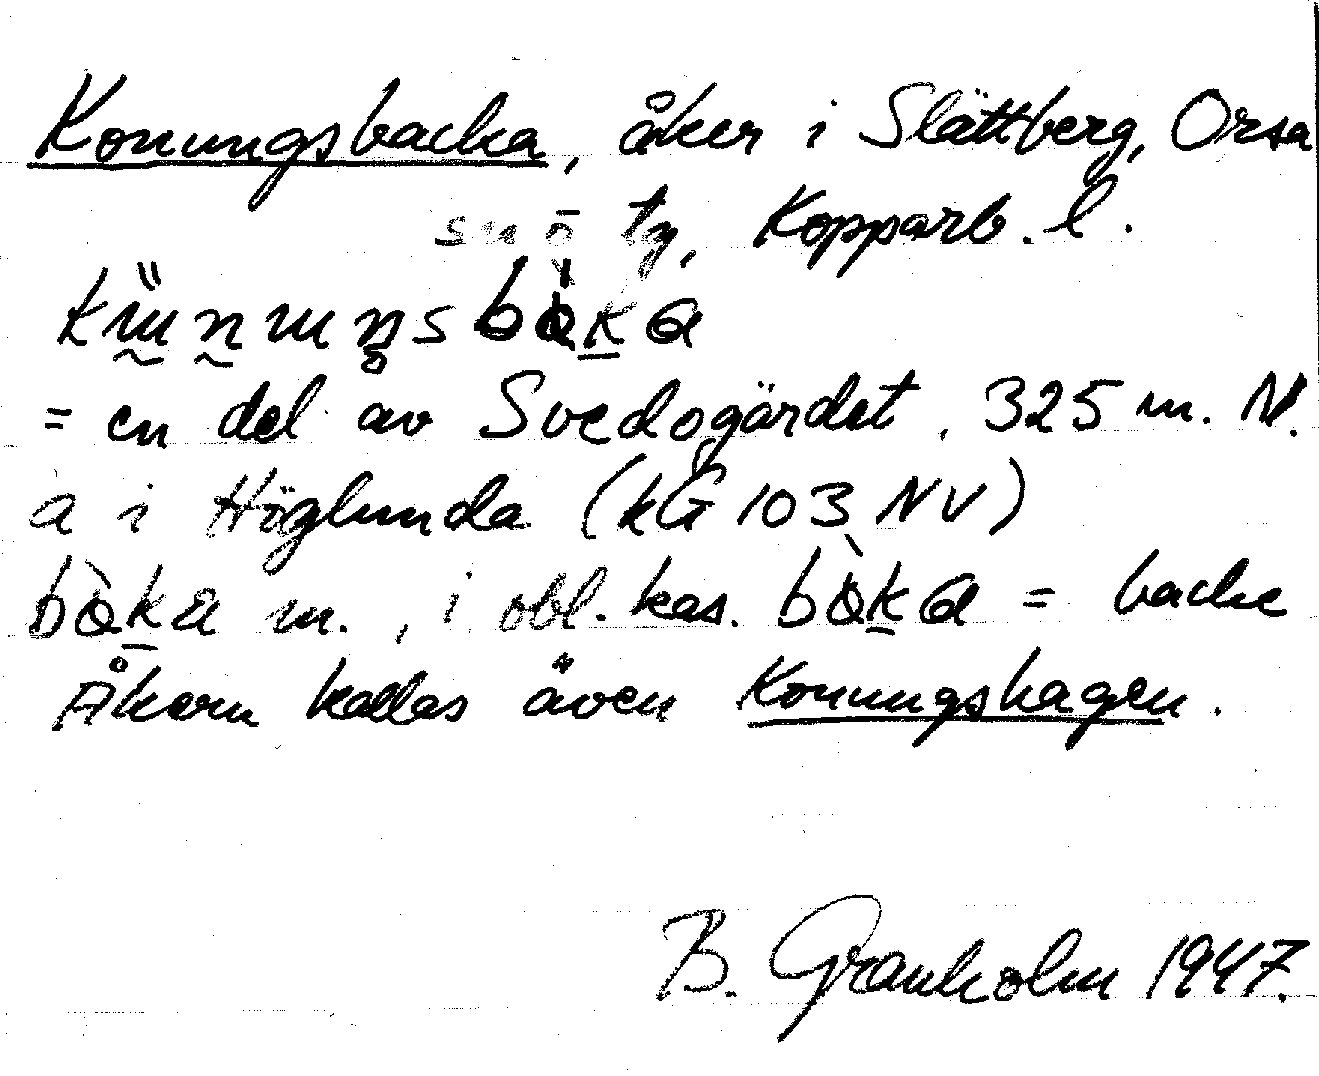 Konungsbacka, åker i Slättberg, Orsa
Kopparb. l.
= en del av Svedogärdet, 325 m. N.
a i Höglunda (kG 103 NV)
bàka m., i obl. kas. bàka = backe
Åkern kallas även Konungshagen.
B. Granholm 1947.